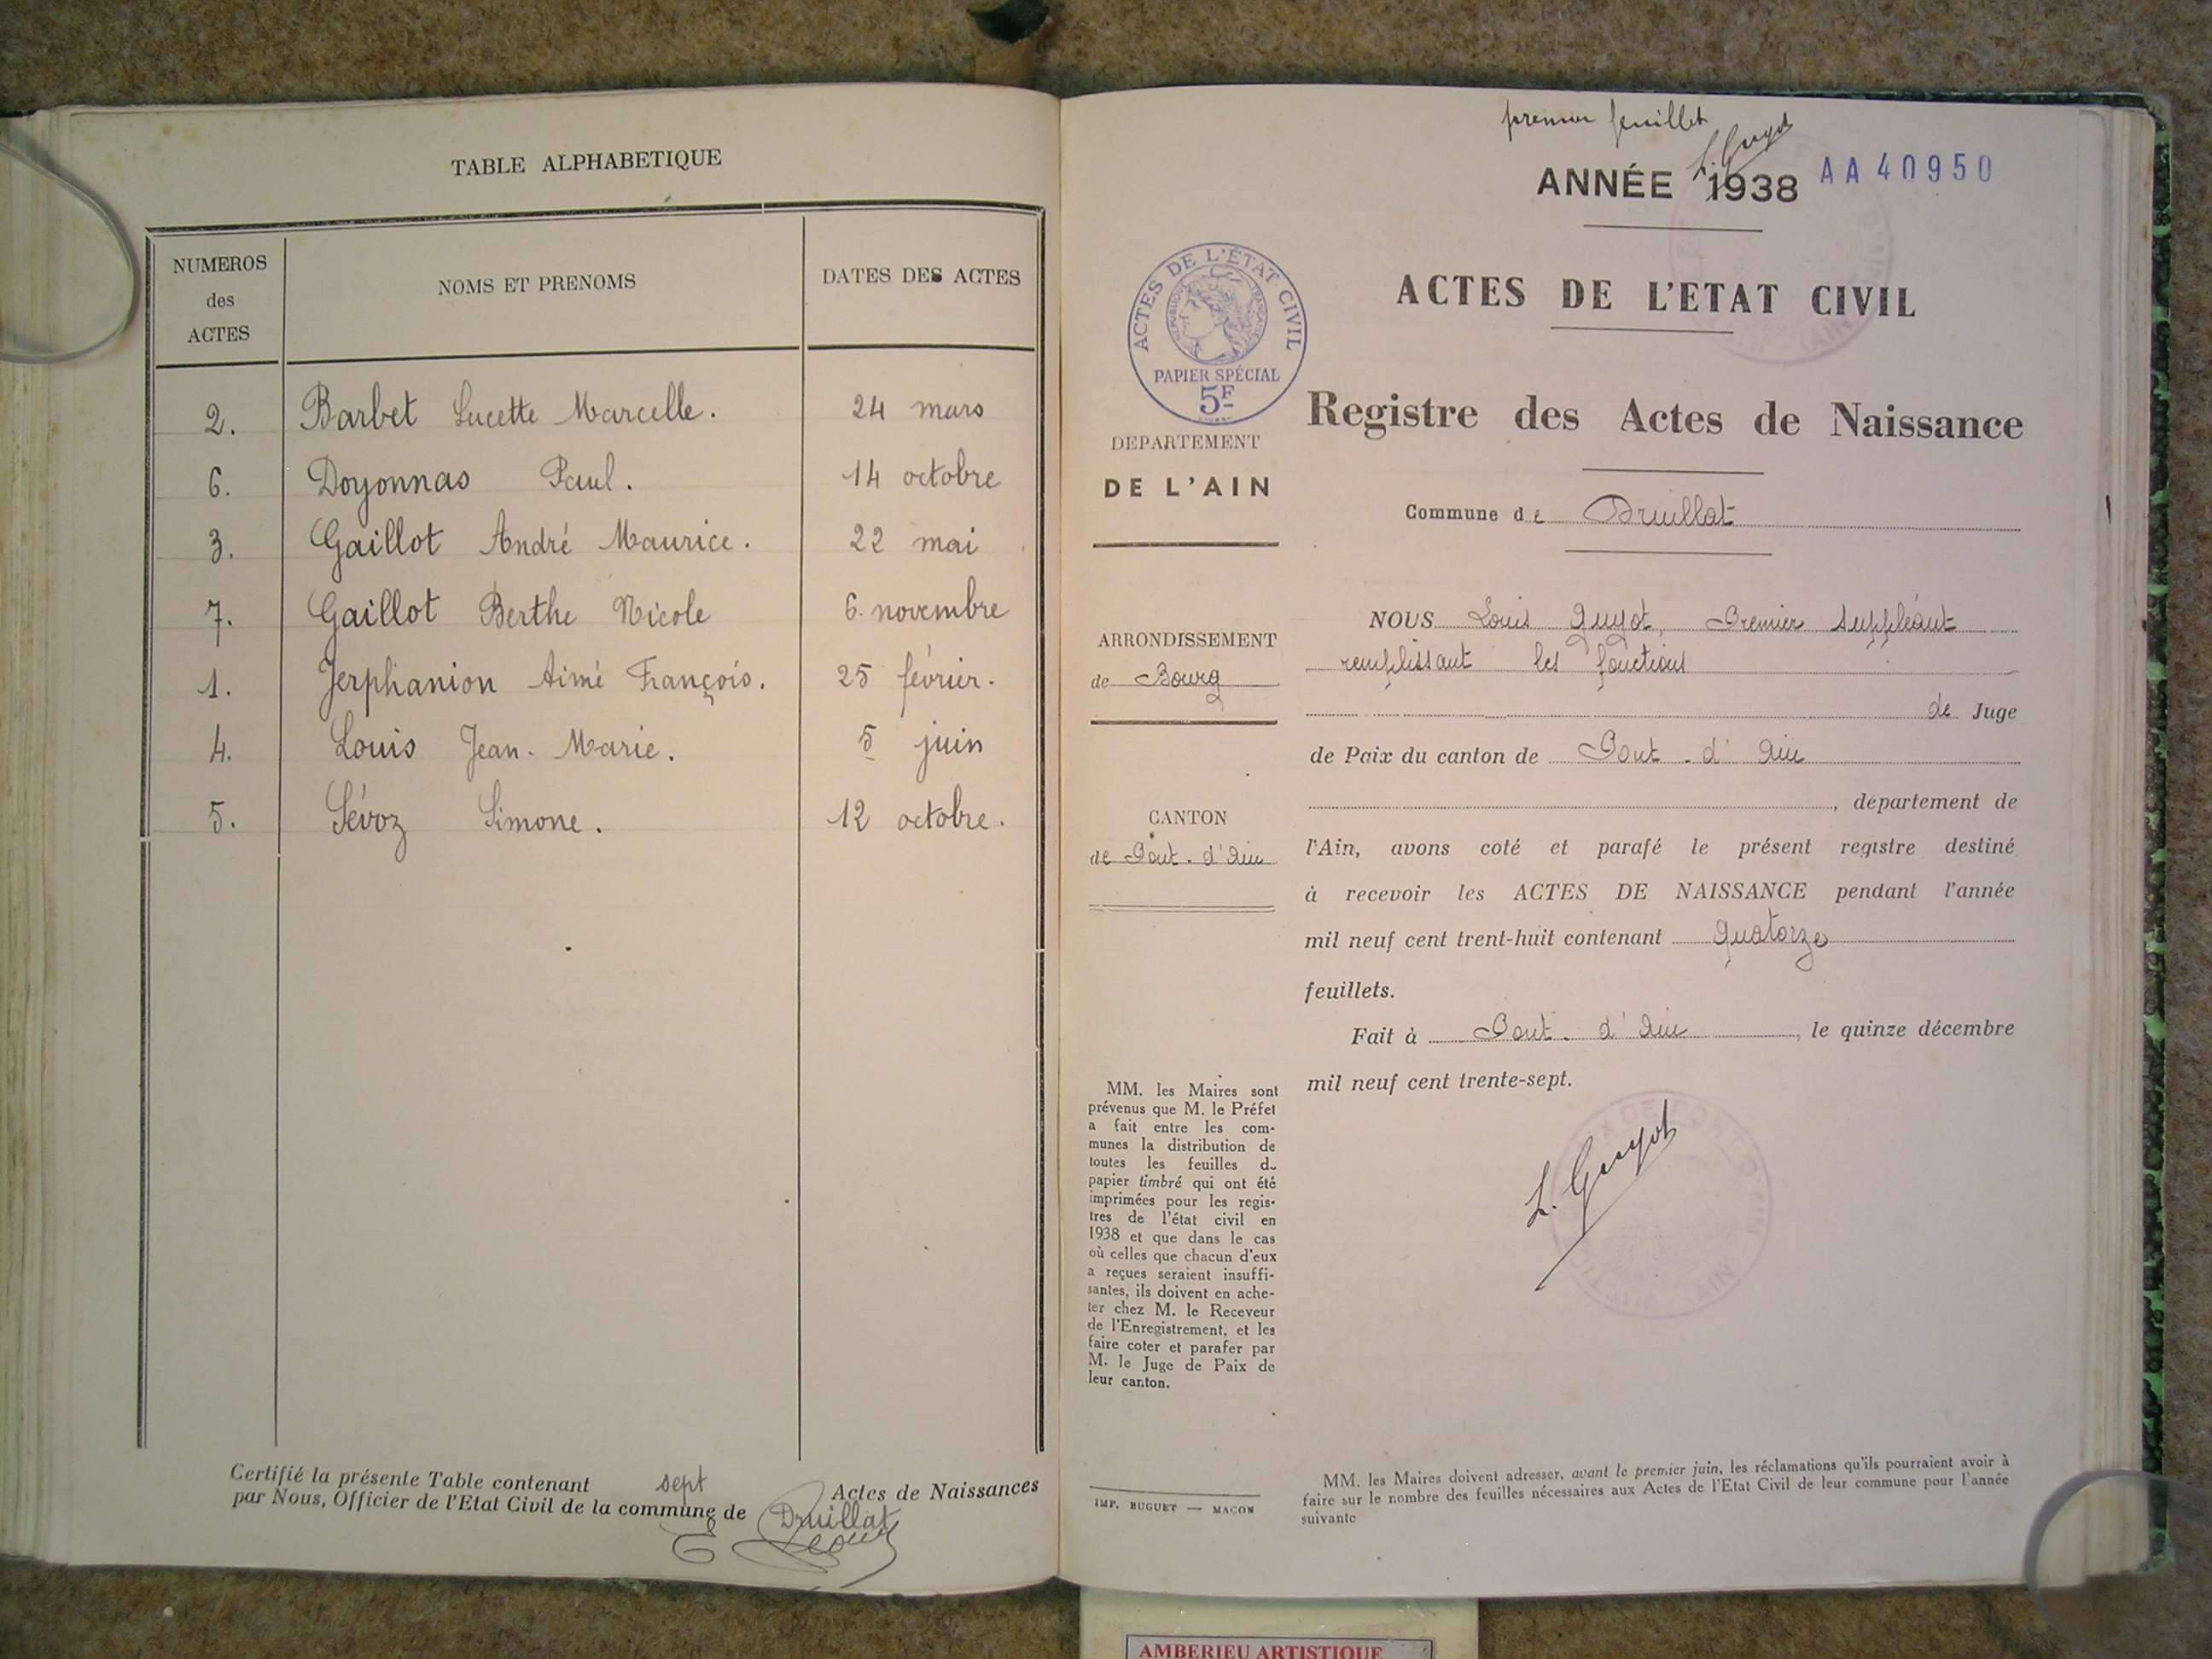 TABLE ALPHABETIQUE
NUMEROS
des
ACTES
NOMS ET PRENOMS
DATES DES ACTES
2. Barbet Lucette Marcelle. 24 mars
6. Doyonnas Paul. 14 octobre
3. Gaillot André Maurice. 22 mai
7. Gaillot Berthe Nicole 6. novembre
1. Jerphanion Aimé François. 25 février.
4. Louis Jean-Marie. 5 juin
5. Sévoz Simone. 12 octobre.
Certifié la présente Table contenant sept Actes de Naissances
par Nous, Officier de l'Etat Civil de la commune de Druillat
premier feuillet
L. Guyot
ANNÉE 1938 AA 40950
ACTES DE L'ETAT CIVIL
ACTES DE L'ÉTAT CIVIL
RÉPUBLIQUE FRANÇAISE
PAPIER SPÉCIAL
5F
Registre des Actes de Naissance
DEPARTEMENT
DE L'AIN
Commune de Druillat
ARRONDISSEMENT
de Bourg
CANTON
de Pont-d'Ain
NOUS Louis Guyot, Premier Suppléant
remplissant les fonctions
de Juge
de Paix du canton de Pont-d'Ain
, département de
l'Ain, avons coté et parafé le présent registre destiné
à recevoir les ACTES DE NAISSANCE pendant l'année
mil neuf cent trent-huit contenant Quatorze
feuillets.
Fait à Pont-d'Ain, le quinze décembre
mil neuf cent trente-sept.
L. Guyot
MM. les Maires sont
prévenus que M. le Préfet
a fait entre les com-
munes la distribution de
toutes les feuilles de
papier timbré qui ont été
imprimées pour les regis-
tres de l'état civil en
1938 et que dans le cas
où celles que chacun d'eux
a reçues seraient insuffi-
santes, ils doivent en ache-
ter chez M. le Receveur
de l'Enregistrement, et les
faire coter et parafer par
M. le Juge de Paix de
leur canton.
IMP. BUGUET — MACON
MM. les Maires doivent adresser, avant le premier juin, les réclamations qu'ils pourraient avoir à
faire sur le nombre des feuilles nécessaires aux Actes de l'Etat Civil de leur commune pour l'année
suivante
AMBERIEU ARTISTIQUE